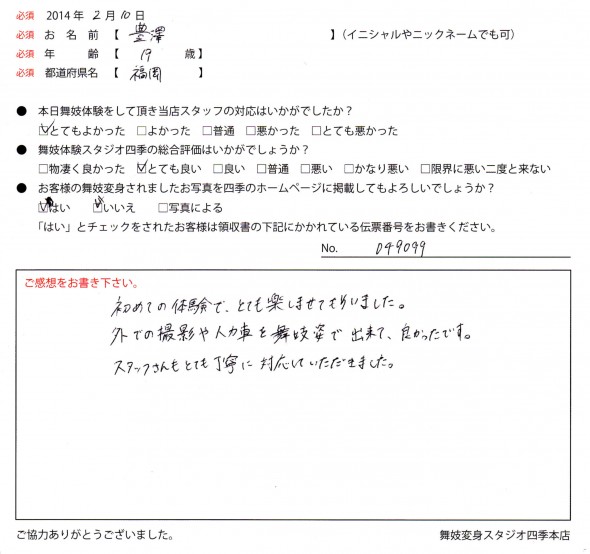 必須 2014年 2月10日
必須 お名前【 豊澤 】(イニシャルやニックネームでも可)
必須 年齢【 19 歳】
必須 都道府県名【 福岡 】
● 本日舞妓体験をして頂き当店スタッフの対応はいかがでしたか?
☑とてもよかった □よかった □普通 □悪かった □とても悪かった
● 舞妓体験スタジオ四季の総合評価はいかがでしょうか?
□物凄く良かった ☑とても良い □良い □普通 □悪い □かなり悪い □限界に悪い二度と来ない
● お客様の舞妓変身されましたお写真を四季のホームページに掲載してもよろしいでしょうか?
☑はい ☑いいえ □写真による
「はい」とチェックをされたお客様は領収書の下記にかかれている伝票番号をお書きください。
No. 049099
ご感想をお書き下さい。
初めての体験で、とても楽しませてもらいました。
外での撮影や人力車を舞妓姿で出来て、良かったです。
スタッフさんもとても丁寧に対応していただきました。
ご協力ありがとうございました。 舞妓変身スタジオ四季本店